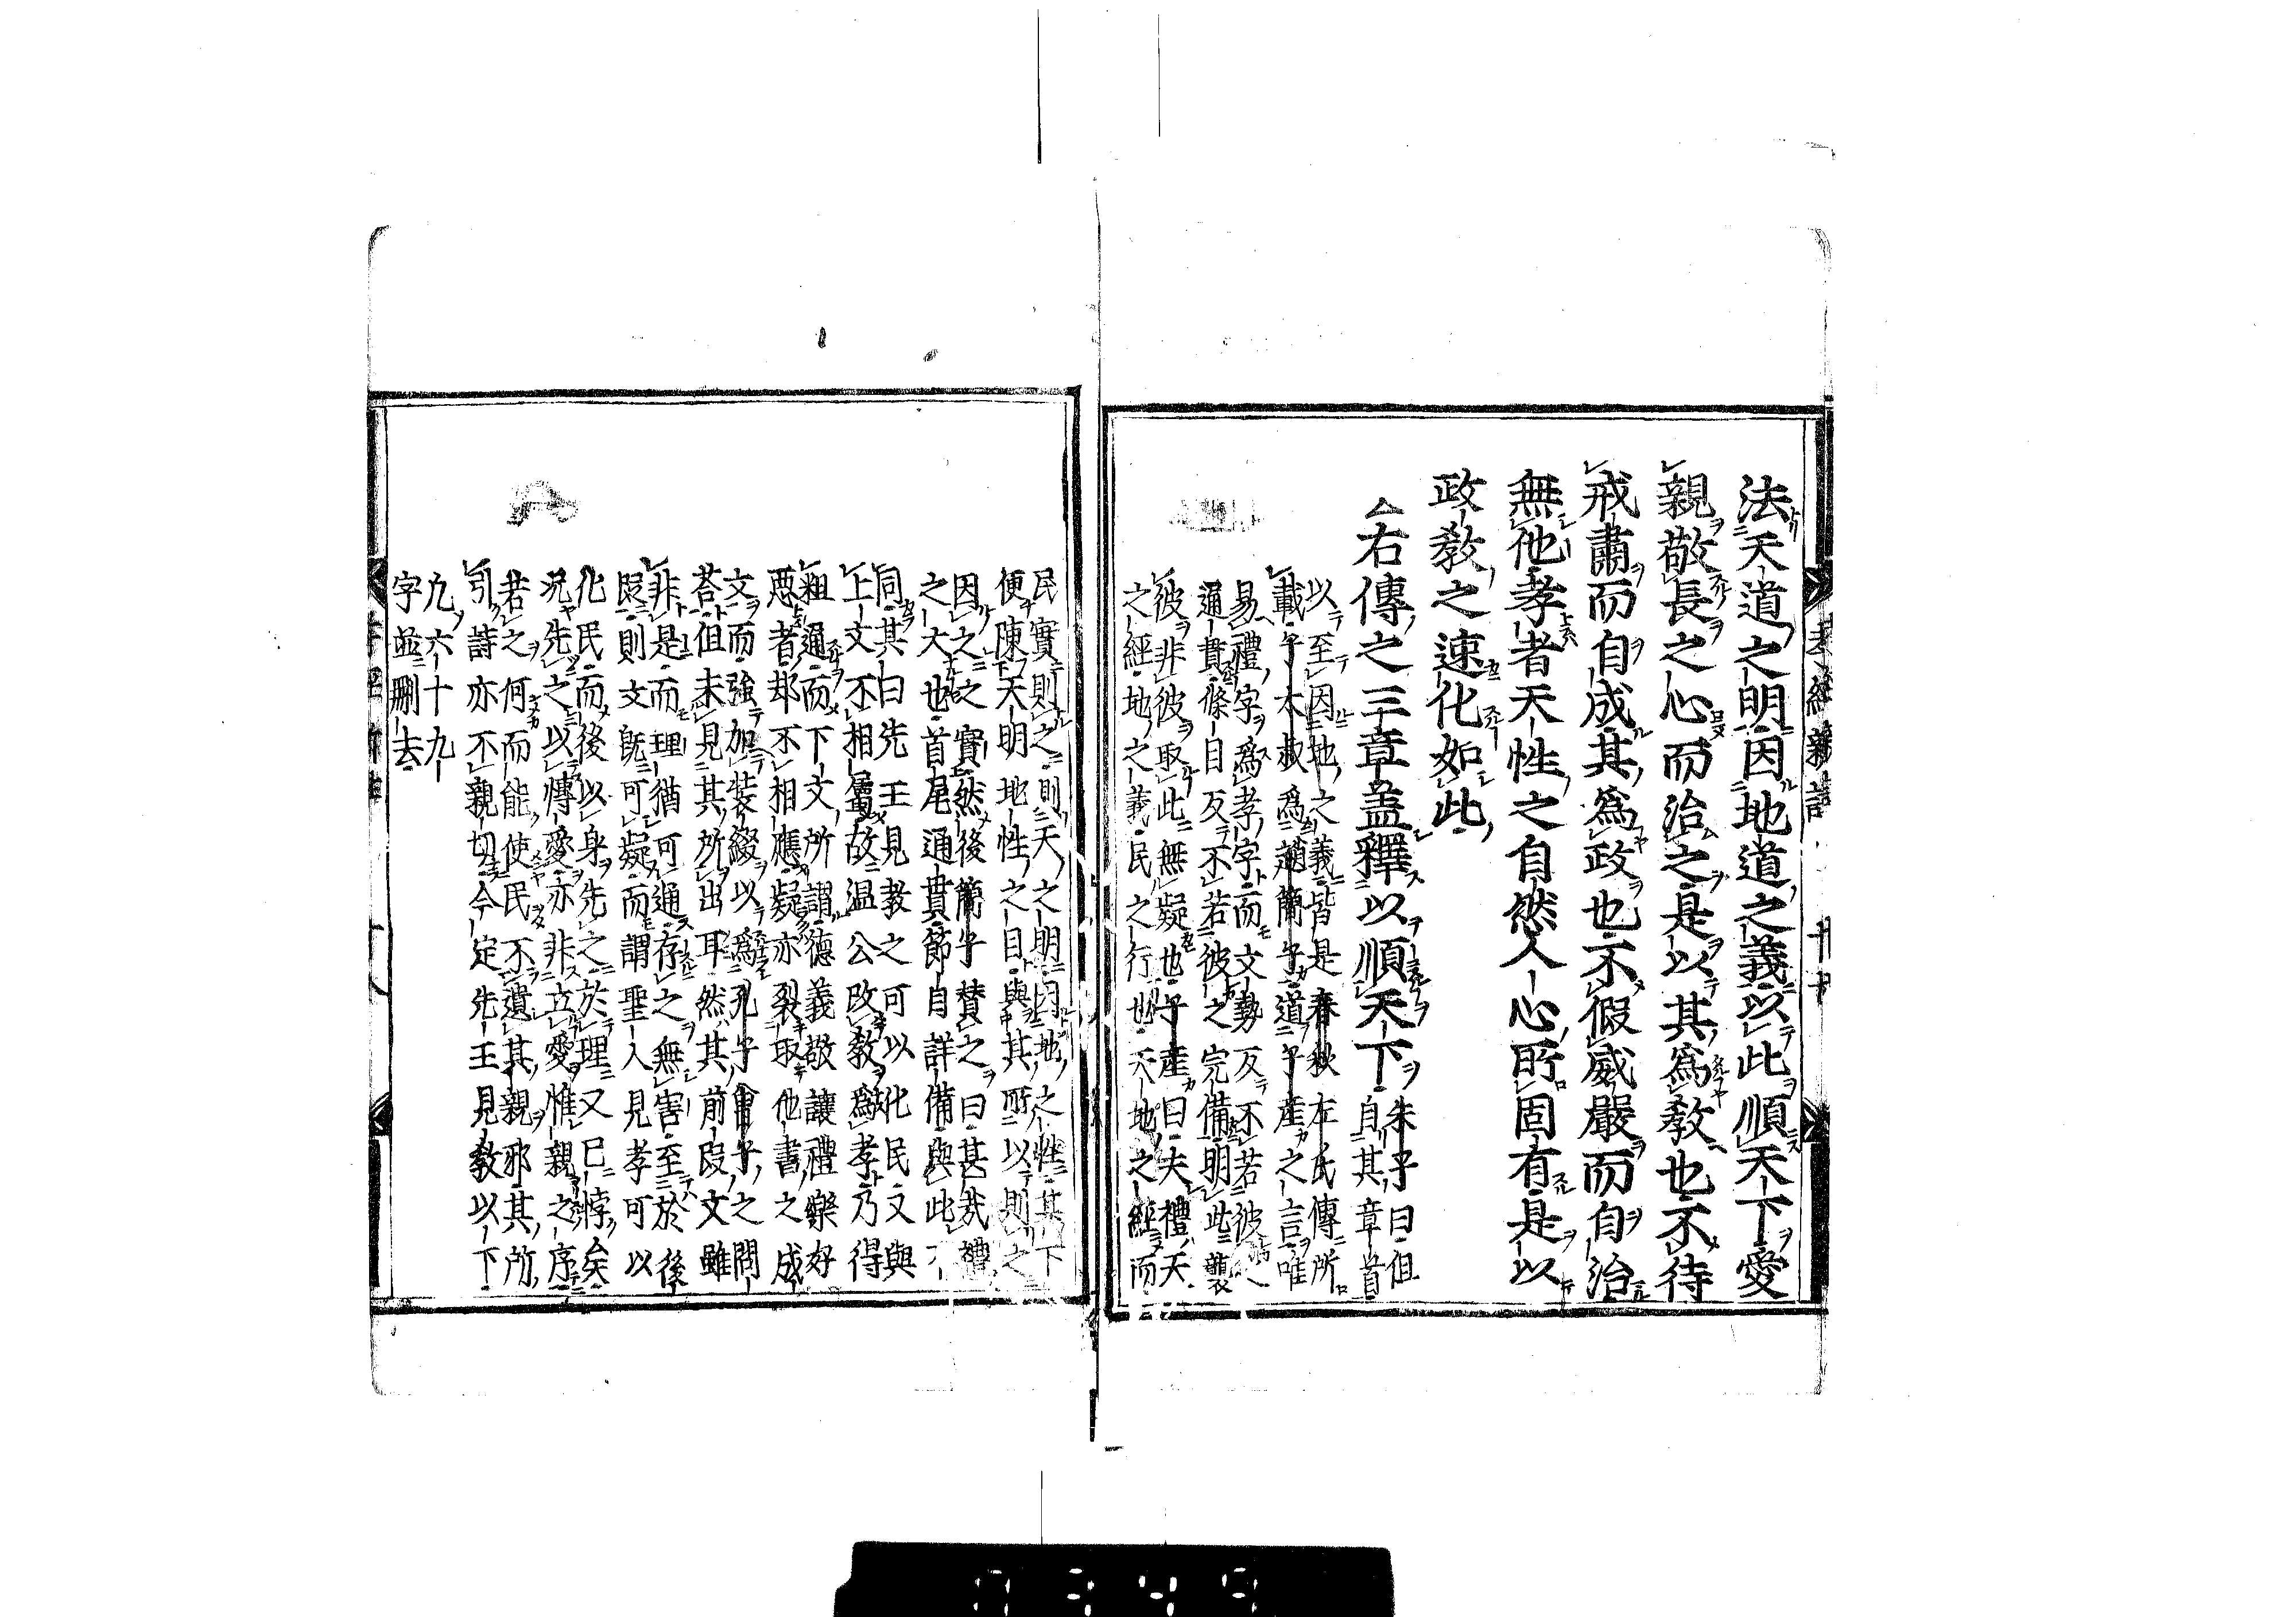 法天道之明因地道之義以此順天下愛
親敬長之心而治之是以其為教也不待
戒肅而自成其為政也不假威嚴而自治
無他孝者天性之自然人心所固有是以
政教之速化如此
右傳之三章蓋釋以順天下
朱子曰但
自其章首
以至因地之義皆是春秋左氏傳所
載子太叔為趙簡子道子産之言唯
易禮字為孝字而文勢反不若彼之
通貫條目反不若彼之完備明此襲
彼非彼取此無疑也子産曰夫禮天
之經地之義民之行也天地之經而
民實則之則天之明因地之性其下
便陳天明地性之目與其所以則之
因之之實然後簡子賛之曰甚哉禮
之大也首尾通貫節目詳備與此不
同其曰先王見教之可以化民又與
上文不相屬故温公改教為孝乃得
粗通而下文所謂德義敬讓禮樂好
惡者却不相應疑亦裂取他書之成
文而強加裝綴以為孔子曾子之問
荅但未見其所出耳然其前段文雖
非是而理猶可通存之無害至於後
段則文既可疑而謂聖人見孝可以
化民而後以身先之於理又已悖矣
況先之以愽愛亦非立愛惟親之序
若之何而能使民不遺其親邪其所
引詩亦不親切今定先王見教以下
凡六十九
字並刪去
孝經
7349